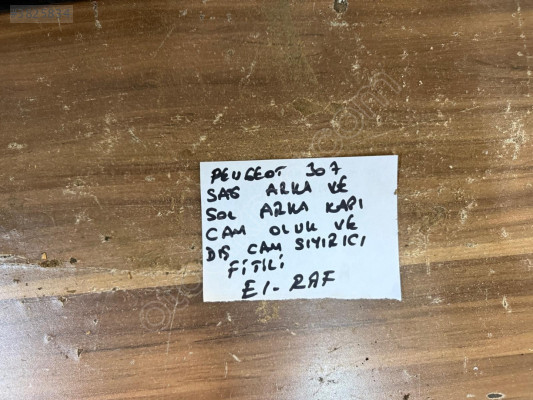 PEUGEOT 307
SAG ARKA VE
SOL ARKA KAPI
CAM OLUK VE
DIŞ CAM SIYIRICI
FİTİLİ
E1-RAF